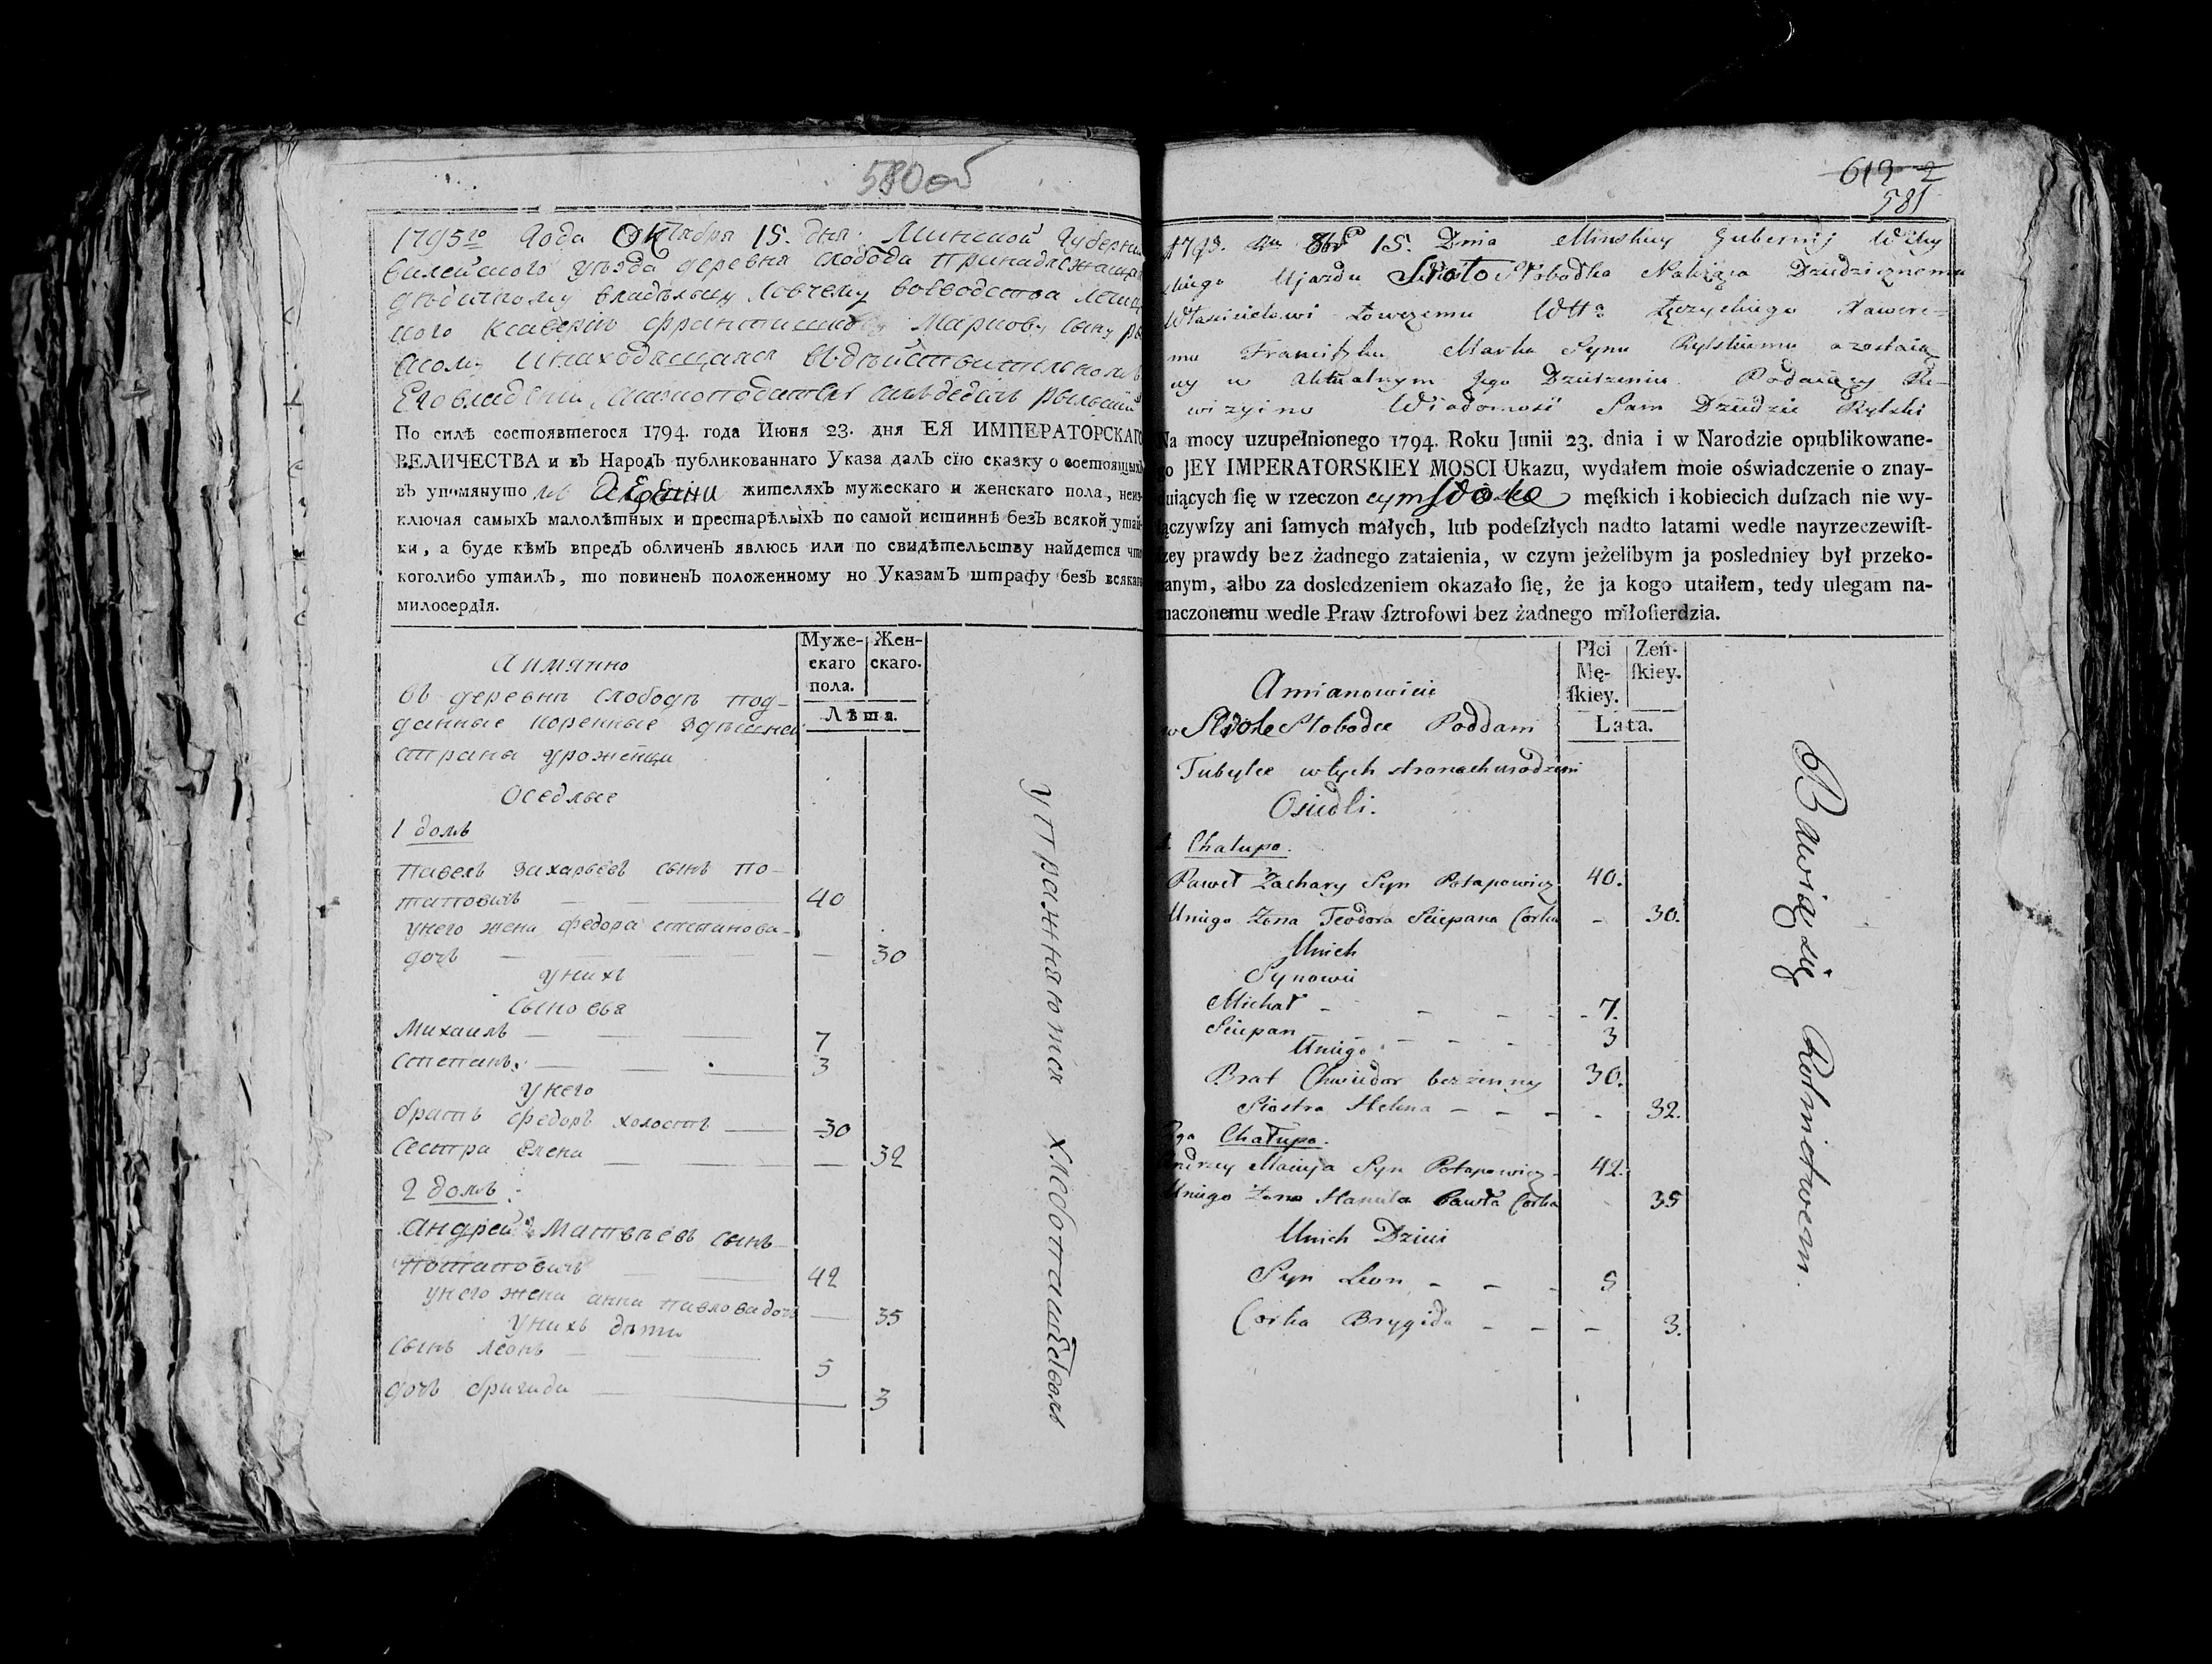 580 об
1795го Года Октября 15. дня. Минской Губернии
вилейского уезда деревня слобода принадлежащая
дедичному владельцу ловчему воеводства
ного Ксаверiю Маркову сыну
инаходящаяся вдействительномъ
Его владении,
По силѣ состоявшегося 1794. года Июня 23. дня ЕЯ ИМПЕРАТОРСКАГО
ВЕЛИЧЕСТВА и въ Народъ публикованнаго Указа далъ сїю сказку о состоящихъ
въ упомянуто деревни жителяхъ мужескаго и женскаго пола, неиз-
ключая самыхъ малолѣтныхъ и престарѣлыхъ по самой истиннѣ безъ всякой утай-
ки, а буде кѣмъ впредъ обличенъ явлюсь или по свидѣтельству найдется что
коголибо утаилъ, то повиненъ положенному по Указамъ штрафу безъ всякаго
милосердїя.
Муже-
скаго
пола.
Жен-
скаго.
Лѣта.
Аимянно
въ деревнѣ слободѣ под-
данные коренные здешней
страны уроженцы
Оседлые
1 домъ
павелъ захарьевъ сынъ по-
таповичъ — 40
унего жена федора степанова-
дочь — — 30
унихъ
сыновья
Михаилъ — 7
степанъ. — 3
унего
братъ федоръ холостъ — 30
сестра елена — 32
2 домъ
андрей Матвѣевъ сынъ-
потаповичъ 42
унего жена анна павлова дочь — 35
унихъ дѣти
сынъ леонъ — 5
дочь бригида — 3
упражняются хлебопашествомъ
612 2
581
15. Dnia Minskiey Gubernij
Ujazdu Słobodka Dziedzicznemu
Właścicielowi Łowczemu Xawere-
mu Franciszku Marka Synu Rylskiemu a zostaią-
cy w aktualnym Jego Dzierzeniu. Podaiący Re-
wizyino Wiadomość Sam Dziedzic Rylski
Na mocy uzupełnionego 1794. Roku Junii 23. dnia i w Narodzie opublikowane-
go JEY IMPERATORSKIEY MOSCI Ukazu, wydałem moie oświadczenie o znay-
duiących ſię w rzeczon męſkich i kobiecich duſzach nie wy-
łączywſzy ani ſamych małych, lub podeſzłych nadto latami wedle nayrzeczewiſt-
ſzey prawdy bez żadnego zataienia, w czym jeżelibym ja posledniey był przeko-
nanym, albo za dosledzeniem okazało ſię, że ja kogo utaiłem, tedy ulegam na-
znaczonemu wedle Praw ſztrofowi bez żadnego miłoſierdzia.
Płci
Mę-
ſkiey.
Zeń-
ſkiey.
Lata.
Amianowicie
w Słobodce Poddani
Tubylce wtych stronach urodzeni
Osiedli.
1. Chałupa.
Paweł Zachary Syn Potapowicz 40.
Uniego Żona Teodora Sciepana Corka - 30.
Unich
Synowie
Michał - 7.
Sciepan - 3
Uniego
Brat Chwiedor bezżenny 30.
Siostra Helena - 32.
2ga Chałupa.
Andrzey Macieja Syn Potapowicz - 42.
Uniego Żona Hanula Pawła Corka 35
Unich Dzieci
Syn Leon - 5
Corka Brygida - 3.
Bawią się Rolnictwem.